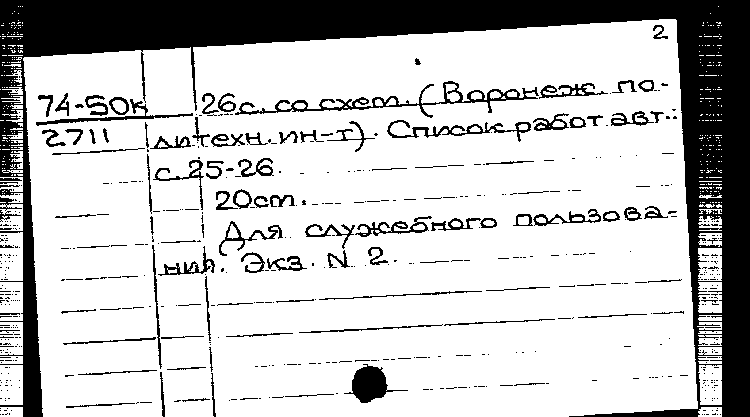 2
74-50к 26с. со схем. (Воронеж. по-
2711 литехн. ин-т). Список работ авт.:
с. 25-26.
20см.
Для служебного пользова-
ния. Экз. N 2.